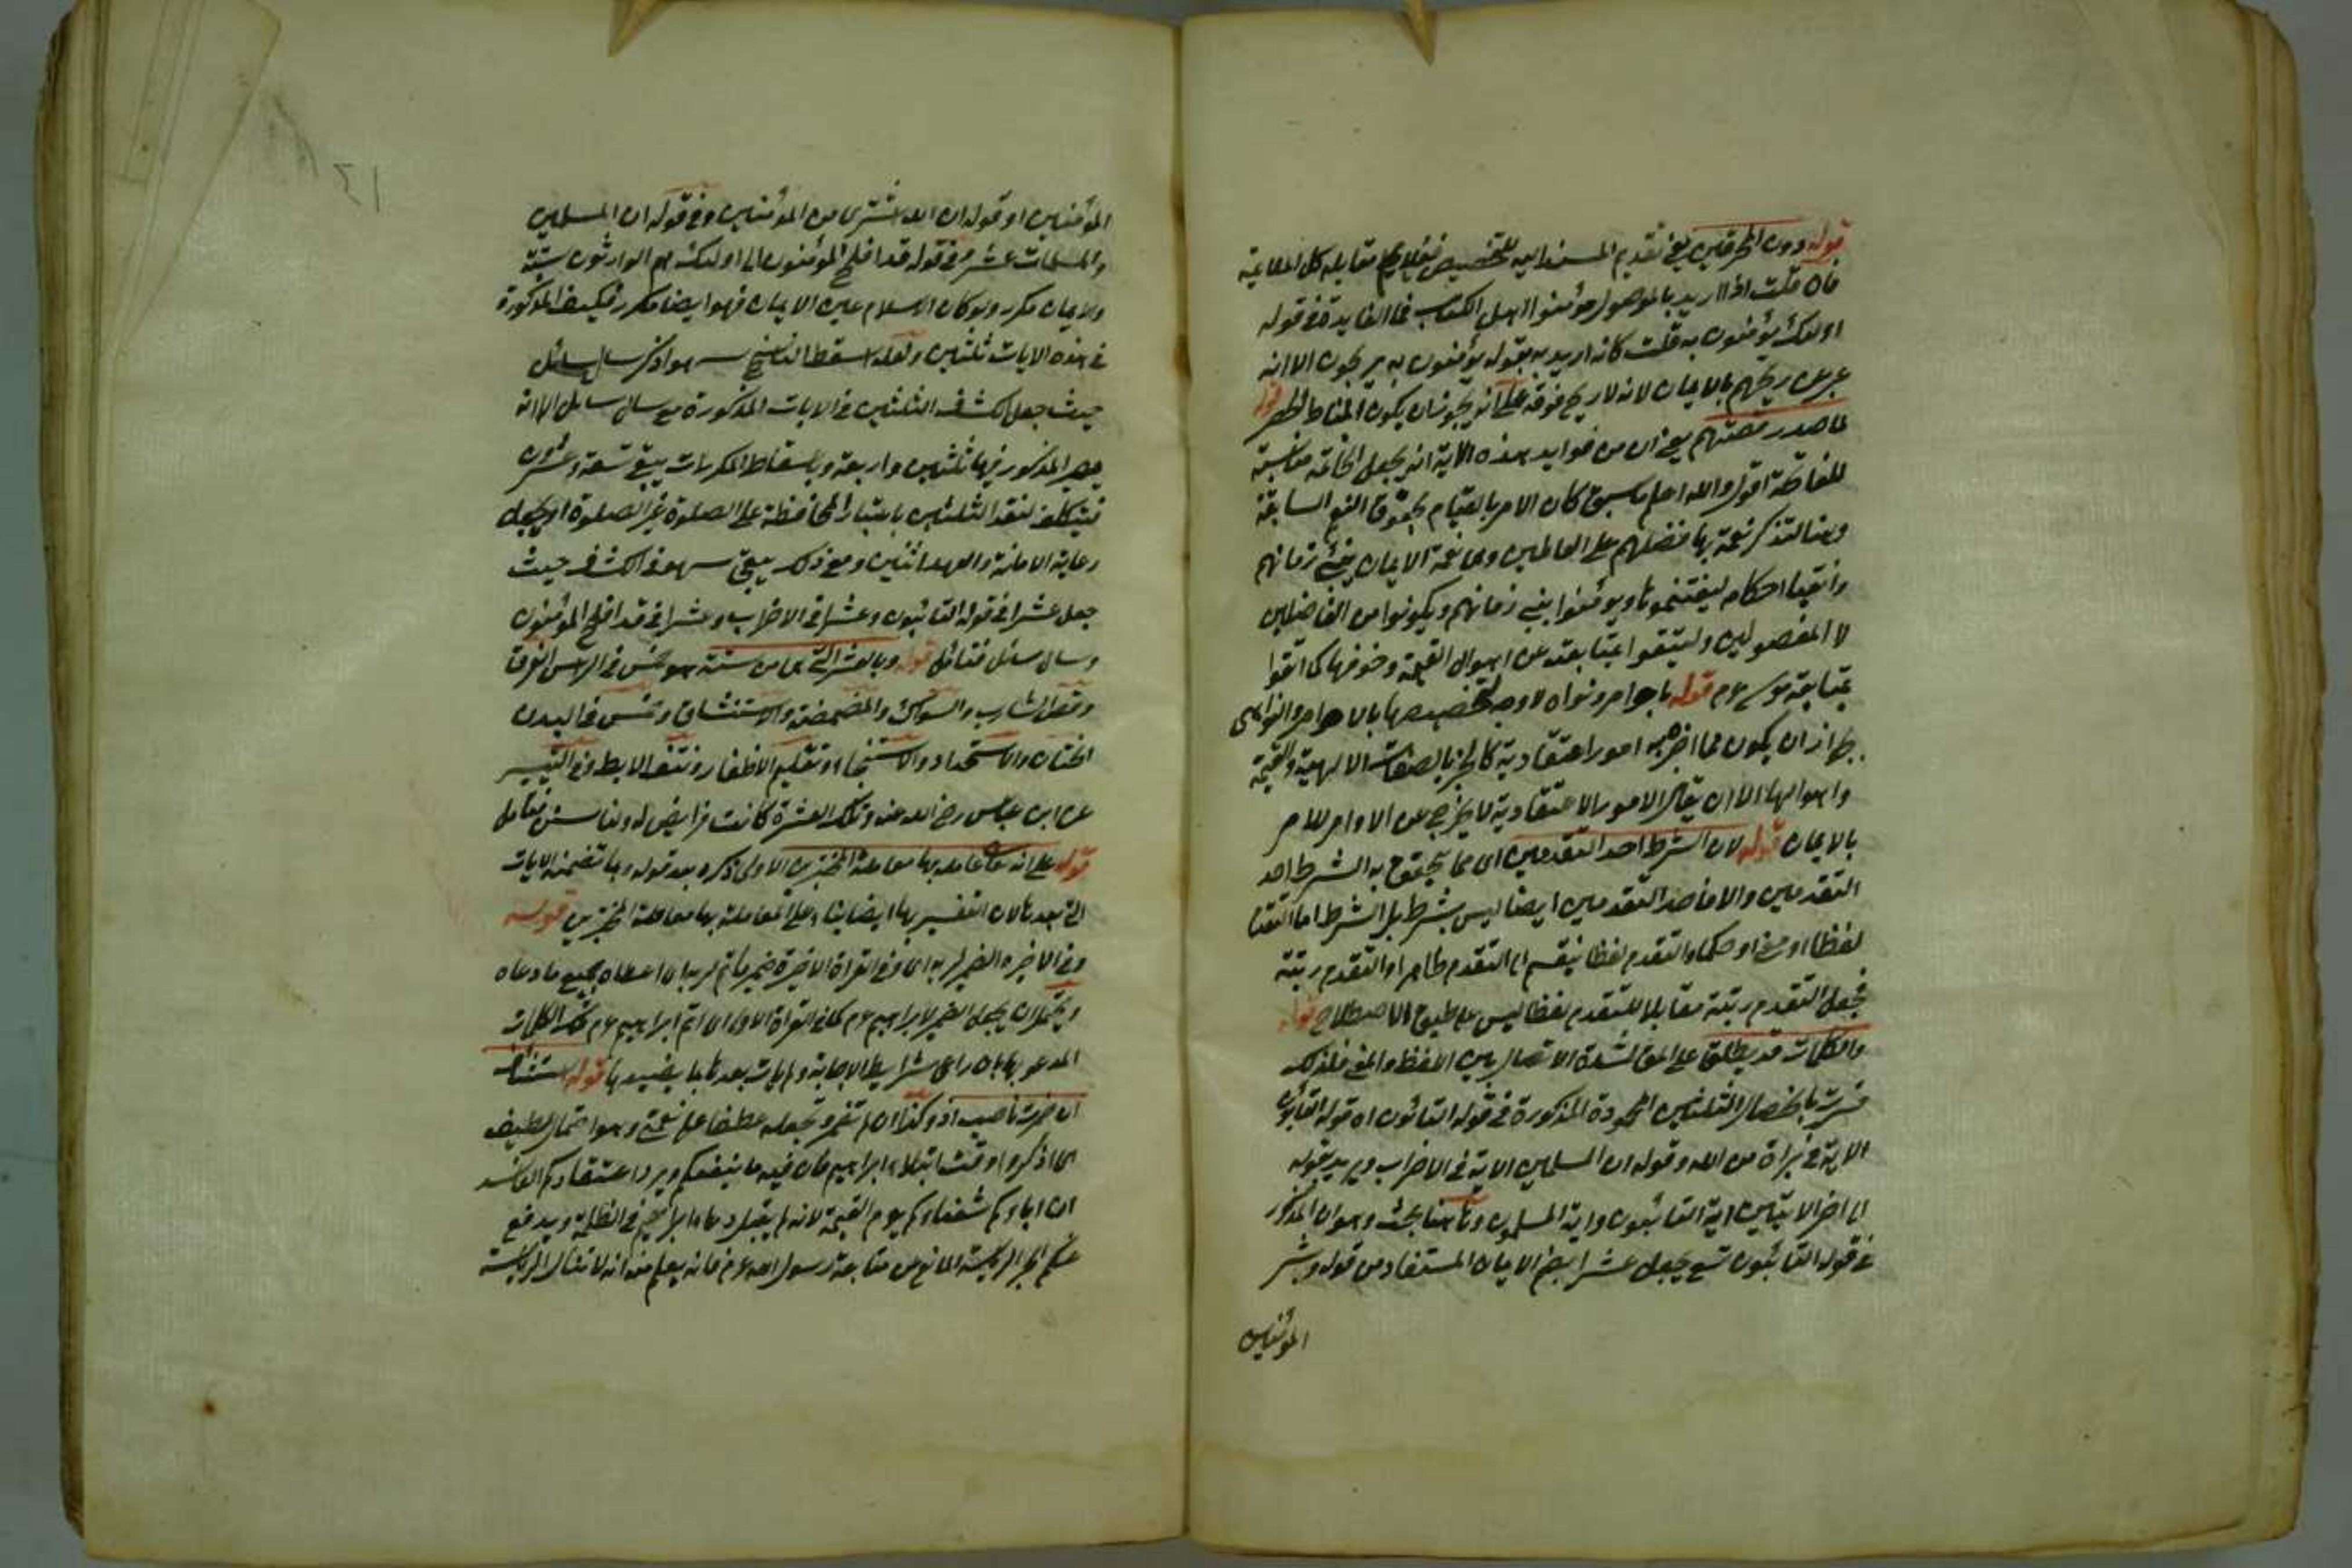 قوله دون المحرفين يعني تقديم المسند اليه للتخصيص مقابله كل
فان قلت اذا اريد بالموصول مؤمنوا اهل الكتاب فما الفايدة في قوله
اولئك يؤمنون به قلت كانه اريد به بقوله يؤمنون به يربحون الا انه
عبر عن ربحهم بالايمان لانه لا ربح فوقه على انه يجوز ان يكون المناط الحصر قوله
لما صدر قصتهم يعني ان من فوايد هذه الاية انه يجعل الخاتمة مناسبة
للفاتحة اقول والله اعلم ما سبق كان الامر بالقيام بحقوق النعم السابقة
وهنا لتذكر نعمة بها فضلهم على العالمين وهي نعمة الايمان بنبي زمانهم
وانقياد احكامه ليغتنموها ويؤمنوا بنبي زمانهم ويكونوا من الفاضلين
لا المفضولين وليتقوا بمتابعته عن اهوال القيمة وخوفها كما اتقوا
بمتابعة موسى عم قوله باوامر ونواه لا وجه لتخصيصها بالاوامر والنواهي
جواز ان يكون مما اخر به امورا اعتقادية كالخبر بالصفات الالهية والقيمة
واهوالها الا ان يقال الامور الاعتقادية لا يخرج عن الاوامر للامر
بالايمان قوله لان الشرط احد التقدمين اى مما يتحقق به الشرط احد
التقدمين والا فاحد التقدمين ايضا ليس بشرط بل الشرط اما التقدم
لفظا او معنى او حكما والتقدم لفظا ينقسم الى التقدم ظاهرا والتقدم رتبة
فجعل التقدم رتبة مقابلا للتقدم لفظا ليس على طبق الاصطلاح قوله
والكلمات قد يطلق على المعاني لشدة الاتصال بين اللفظ والمعنى فلذلك
فسرت بالخصال الثلثين المحمودة المذكورة في قوله التائبون اه قوله التائبون
الاية في براة من الله وقوله ان المسلمين الاية في الاحزاب ويريد بقوله
الى اخر الايتين اية التائبون واية المسلمون وهاهنا بحث وهو ان المذكور
في قوله التائبون تسع يجعل عشرا بضم الايمان المستفاد من قوله وبشر
المؤمنين
المؤمنين او قوله ان الله اشترى من المؤمنين وفي قوله ان المسلمين
والمسلمات عشر وفي قوله قد افلح المؤمنون الى اولئك هم الوارثون ستة
والايمان مكرر ولو كان الاسلام عين الايمان فهو ايضا مكرر فكيف المذكورة
في هذه الايات ثلثين ولعله اسقط الناسخ سهوا ذكر سال سائل
حيث جعل الكشاف الثلثين في الايات المذكورة مع سال سائل الا انه
يصير المذكور فيها ثلثين واربعة وباسقاط المكررات يبقى تسعة وعشرون
فيتكلف لتقد الثلثين باعتبار المحافظة على الصلوة غير الصلوة او يجعل
رعاية الامانة والعهد اثنين ومع ذلك يبقى سهو في الكشاف حيث
جعل عشرا في قوله التائبون وعشرا في الاحزاب وعشرا في قد افلح المؤمنون
وسال سائل فتامل قوله وبالعشر التي هي من سننه هو خمس في الراس الفرق
وقص الشارب والسواك والمضمضة والاستنشاق وخمس في البدن
الختان والاستحداد والاستنجاء وتقليم الاظفار ونتف الابط وفي التيسير
عن ابن عباس رضي الله عنه وتلك العشرة كانت فرايض له ولنا سنن فتامل
قوله على انه تعالى عامله بها معاملة المختبرين الاولى ذكره بعد قوله وبما تضمنه الايات
التي بعدها لان التفسير بها ايضا بناء على المعاملة بها معاملة المختبرين قوله
وفي الاخيرة الضمير لربه اى وفي القراة الاخيرة ضمير فاتم لربه اى اعطاه جميع ما دعاه
ويحتمل ان يجعل الضمير لابراهيم عم كما في القراة الاولى اى اتم ابراهيم عم تلك الكلمات
المدعو بها بان راعى شرايط الاجابة ولم يات بعدها بما يضيعها قوله استئناف
ان اضمرت ناصب اذ وكذا ان لم تضمر وتجعله عطفا على نعمتي وهو احتمال لطيف
اى اذكروا وقت ابتلاء ابراهيم فان فيه ما ينفعكم ويرد اعتقادكم الفاسد
ان اباؤكم شفعاؤكم يوم القيمة لانه لم يقبل دعاء ابراهيم في الظلمة ويدفع
عنكم الرياسة المانع من متابعة رسول الله عم فانه يعلم منه انه لا تنال الرياسة